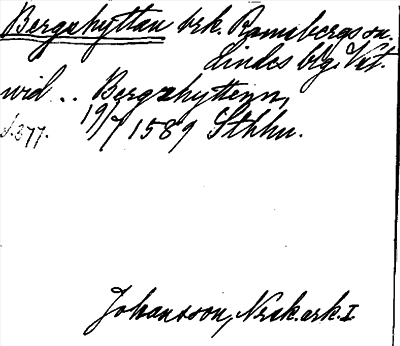 Bergshyttan brk. Ramsbergs sn.
Lindes bg. Vst.
vid .. Bergshyttenn,
19/7 1589 Sthhn.
s. 277.
Johansson, Norsk. ark. I